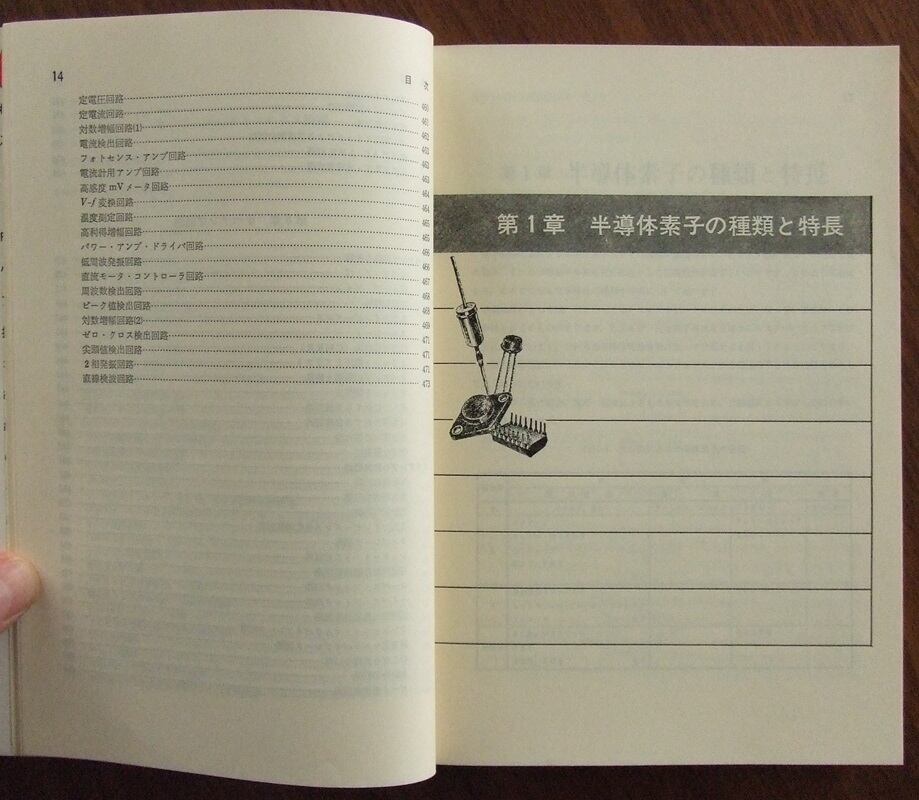 14
目次
定電圧回路 460
定電流回路 461
対数増幅回路(1) 462
電流検出回路 463
フォトセンス・アンプ回路 463
電流計用アンプ回路 463
高感度mVメータ回路 464
V-f変換回路 464
温度測定回路 465
高利得増幅回路 465
パワー・アンプ・ドライバ回路 466
低周波発振回路 466
直流モータ・コントローラ回路 467
周波数検出回路 468
ピーク値検出回路 468
対数増幅回路(2) 469
ゼロ・クロス検出回路 471
尖頭値検出回路 471
2相発振回路 471
直線検波回路 473
第1章 半導体素子の種類と特長